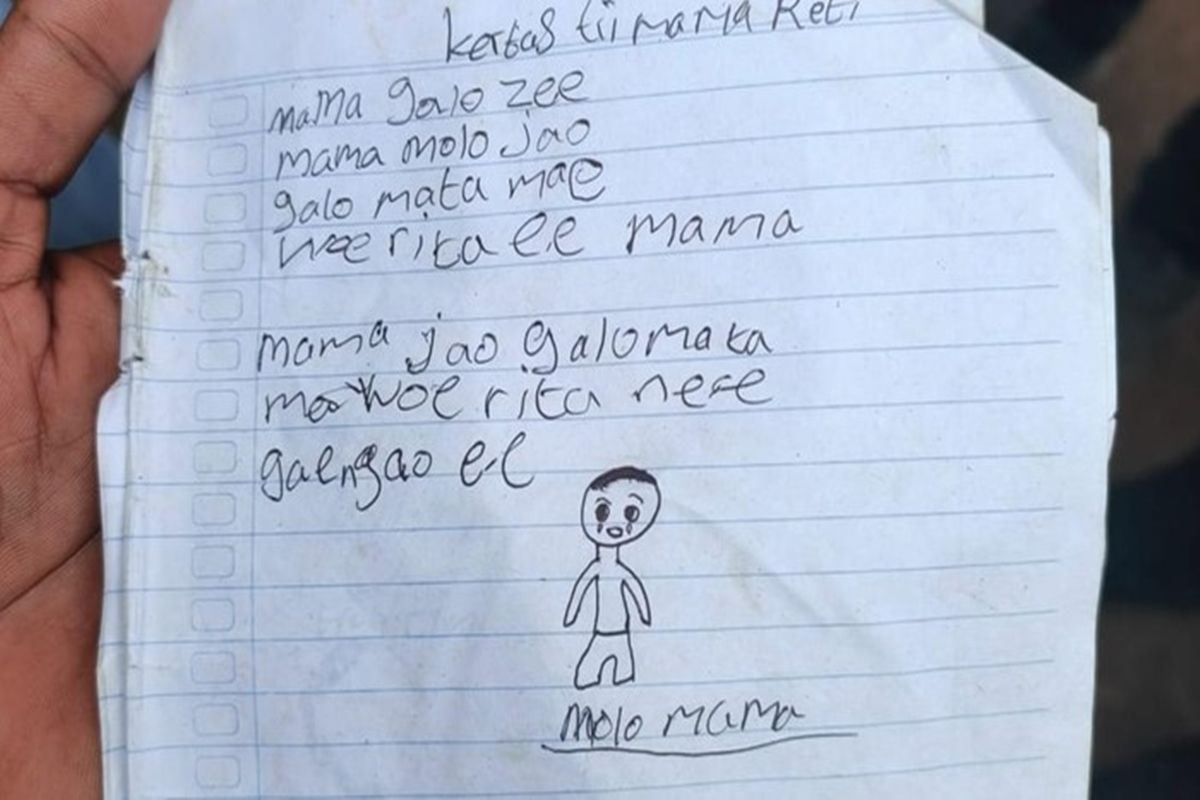 kertas tii mama Reti
mama galo zee
mama molo jao
galo mata mae
woe rita ee mama
mama jao galo mata
mae woe rita ne ee
gae ngao ee
molo mama